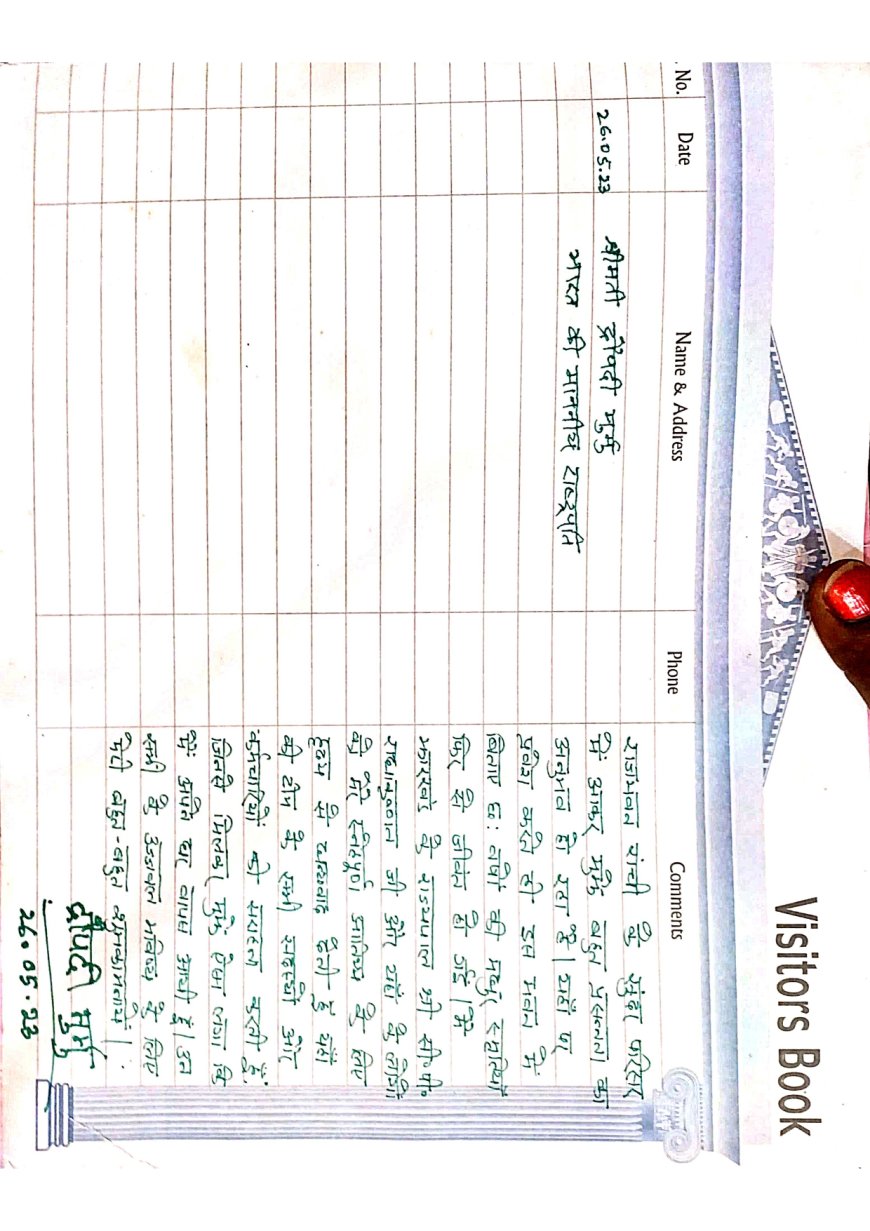 Visitors Book
. No. Date Name & Address Phone Comments
26.05.23
श्रीमती द्रौपदी मुर्मु
भारत की माननीय राष्ट्रपति
राजभवन रांची के सुंदर परिसर
में आकर मुझे बहुत प्रसन्नता का
अनुभव हो रहा है। यहाँ पर
प्रवेश करते ही इस भवन में
बिताए छ: वर्षों की मधुर स्मृतियाँ
फिर से जीवंत हो गई। मैं
झारखंड के राज्यपाल श्री सी.पी.
राधाकृष्णन जी और यहाँ के लोगों
के मेरे स्नेहपूर्ण आतिथ्य के लिए
हृदय से धन्यवाद देती हूँ यहाँ
की टीम के सभी सदस्यों और
कर्मचारियों की सराहना करती हूँ
जिनसे मिलकर मुझे ऐसा लगा कि
मैं अपने घर वापस आयी हूँ। इन
सभी के उज्ज्वल भविष्य के लिए
मेरी बहुत-बहुत शुभकामनायें।
द्रौपदी मुर्मु
26.05.23